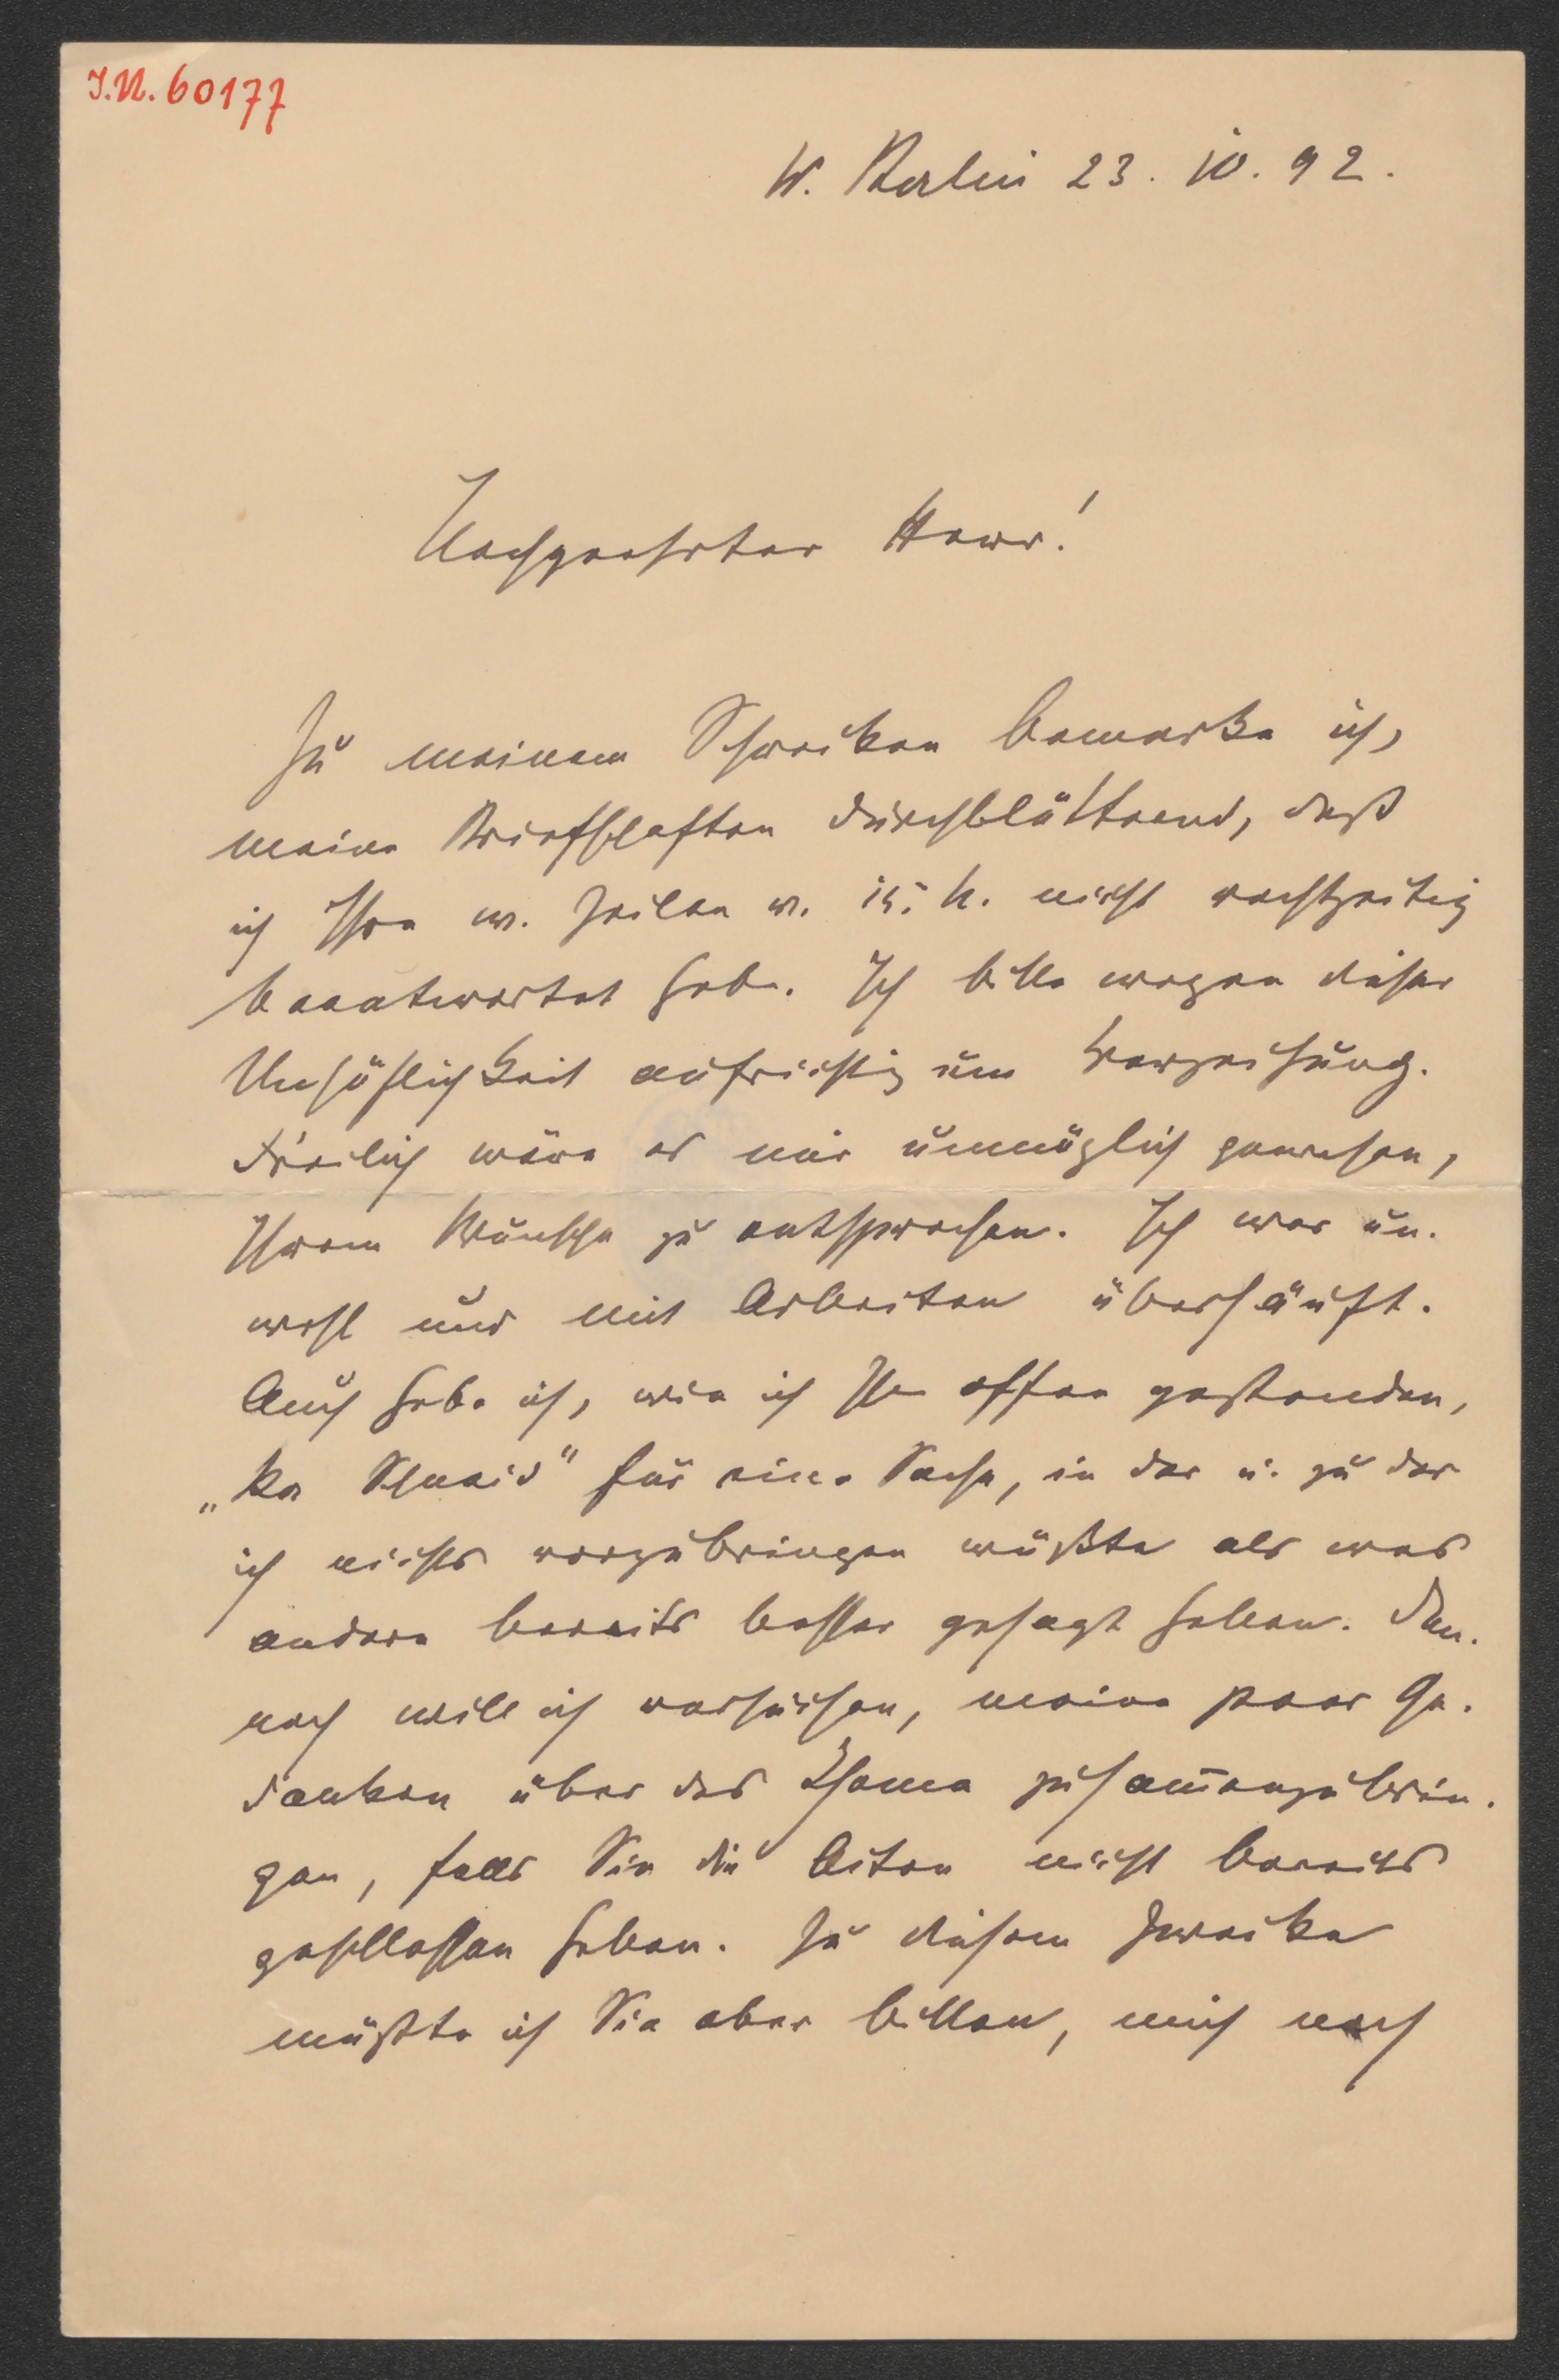 I.N. 60177
W. Berlin 23. 10. 92.
Hochgeehrter Herr!
Zu meinem Schrecken bemerke ich,
meine Briefschaften durchblätternd, daß
ich Ihre w. Zeilen v. 15. h. nicht rechtzeitig
beantwortet habe. Ich bitte wegen dieser
Unhöflichkeit aufrichtig um Verzeihung.
Freilich wäre es mir unmöglich gewesen,
Ihrem Wunsche zu entsprechen. Ich war un-
wohl und mit Arbeiten überhäuft.
Auch habe ich, wie ich Ihnen offen gestanden,
„ka Schneid" für eine Sache, in der u. zu der
ich nichts vorzubringen wüßte als was
andere bereits besser gesagt haben. Den-
noch will ich versuchen, meine paar Ge-
danken über das Thema zusam̄enzubrin-
gen, falls Sie die Akten nicht bereits
geschlossen haben. Zu diesem Zwecke
müßte ich Sie aber bitten, mich noch